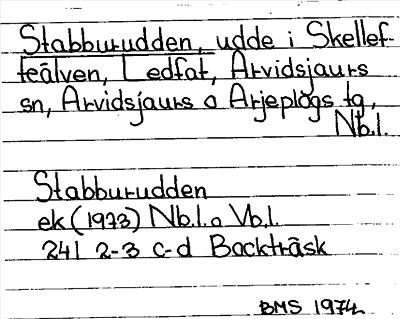 Stabburudden, udde i Skellef-
teälven, Ledfat, Arvidsjaurs
sn, Arvidsjaurs o Arjeplogs tg,
Nb.l.
Stabburudden
ek (1973) Nb.l. o Vb.l.
24I 2-3 c-d Backträsk
BMS 1974